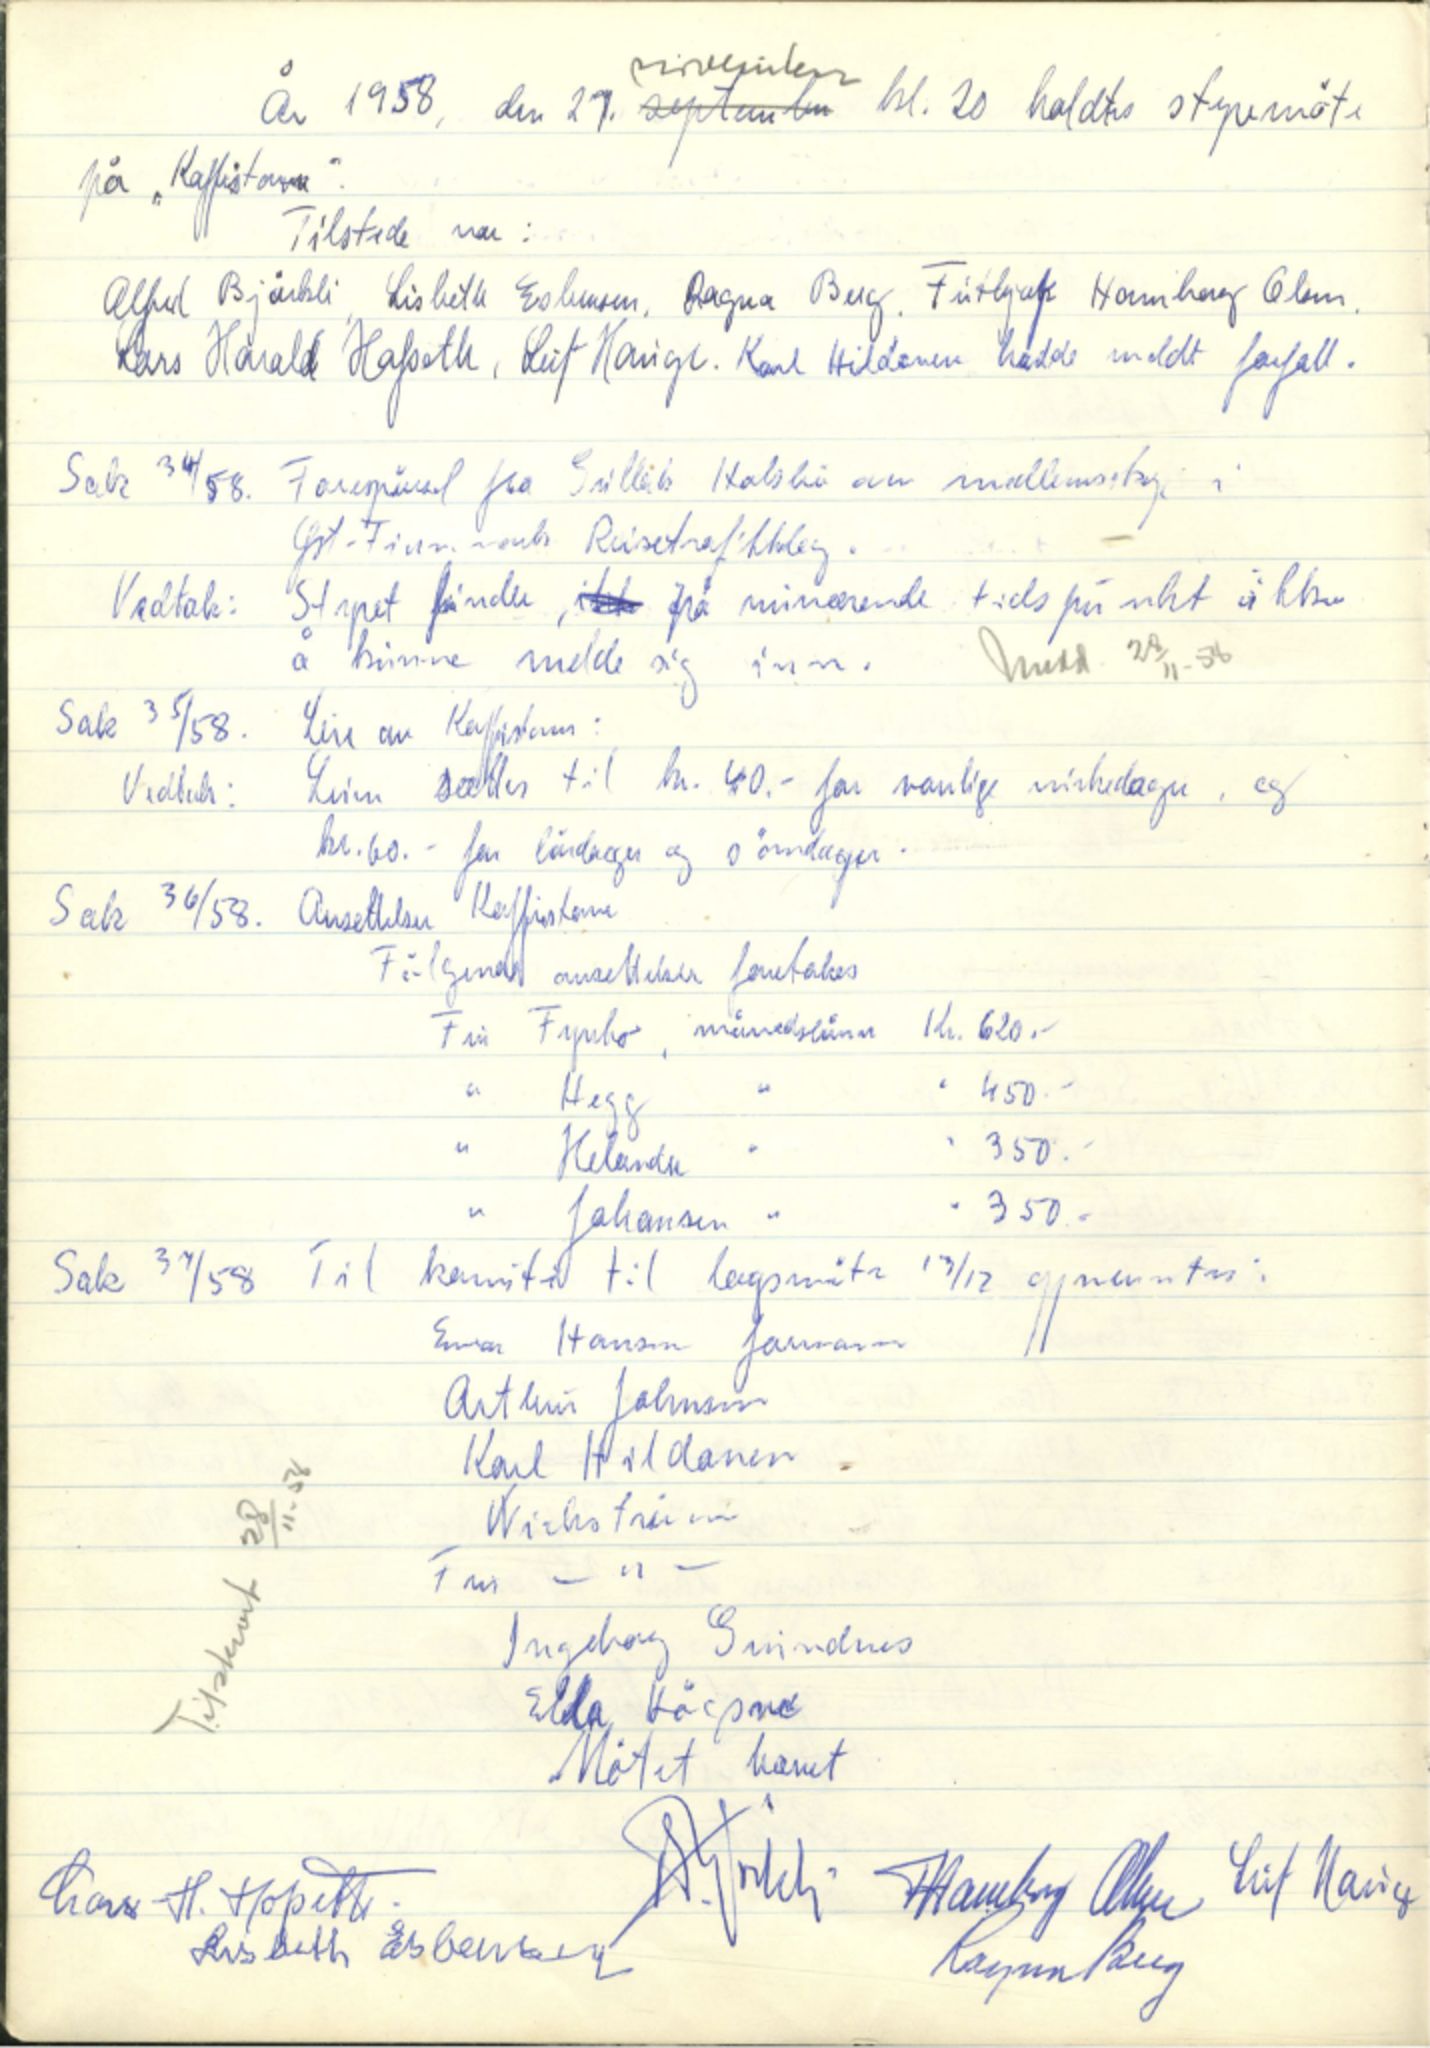 november
År 1958, den 27. september kl. 20 holdtes styremöte
på „Kaffistova“.
Tilstede var:
Alfred Björkli, Lisbeth Esbensen, Ragna Berg, Fritjof Hamborg Olsen,
Lars Harald Hopseth, Leif Hauge. Karl Hildonen hadde meldt forfall.
Sak 34/58. Forespörsel fra om medlemskap i
Öst-Finnmark Reisetrafikklag.
Vedtak: Styret finder, på nuværende tidspunkt ikke
å kunne melde sig inn. Medd 28/11-58
Sak 35/58. Leie av Kaffistova:
Vedtak: Leien settes til kr. 40.- for vanlige virkedager, og
kr. 60.- for lördager og söndager.
Sak 36/58. Ansettelser Kaffistova
Fölgende ansettelser foretakes
Fru , månedslönn Kr. 620.-
" Hegg " " 450.-
" Helander " " 350.-
" Johansen " " 350.-
Sak 37/58 Til komité til lagsmöte 13/12 oppnevntes:
Einar Hansen formann
Arthur Johnsen
Karl Hildonen
Wickström
Fru - " -
Ingeborg
Ella
Mötet hevet
Tilskrevet 28/11-58
Lars H. Hopseth. A. Björkli FHamborg Olsen Leif Hauge
Lisbeth Esbensen Ragna Berg